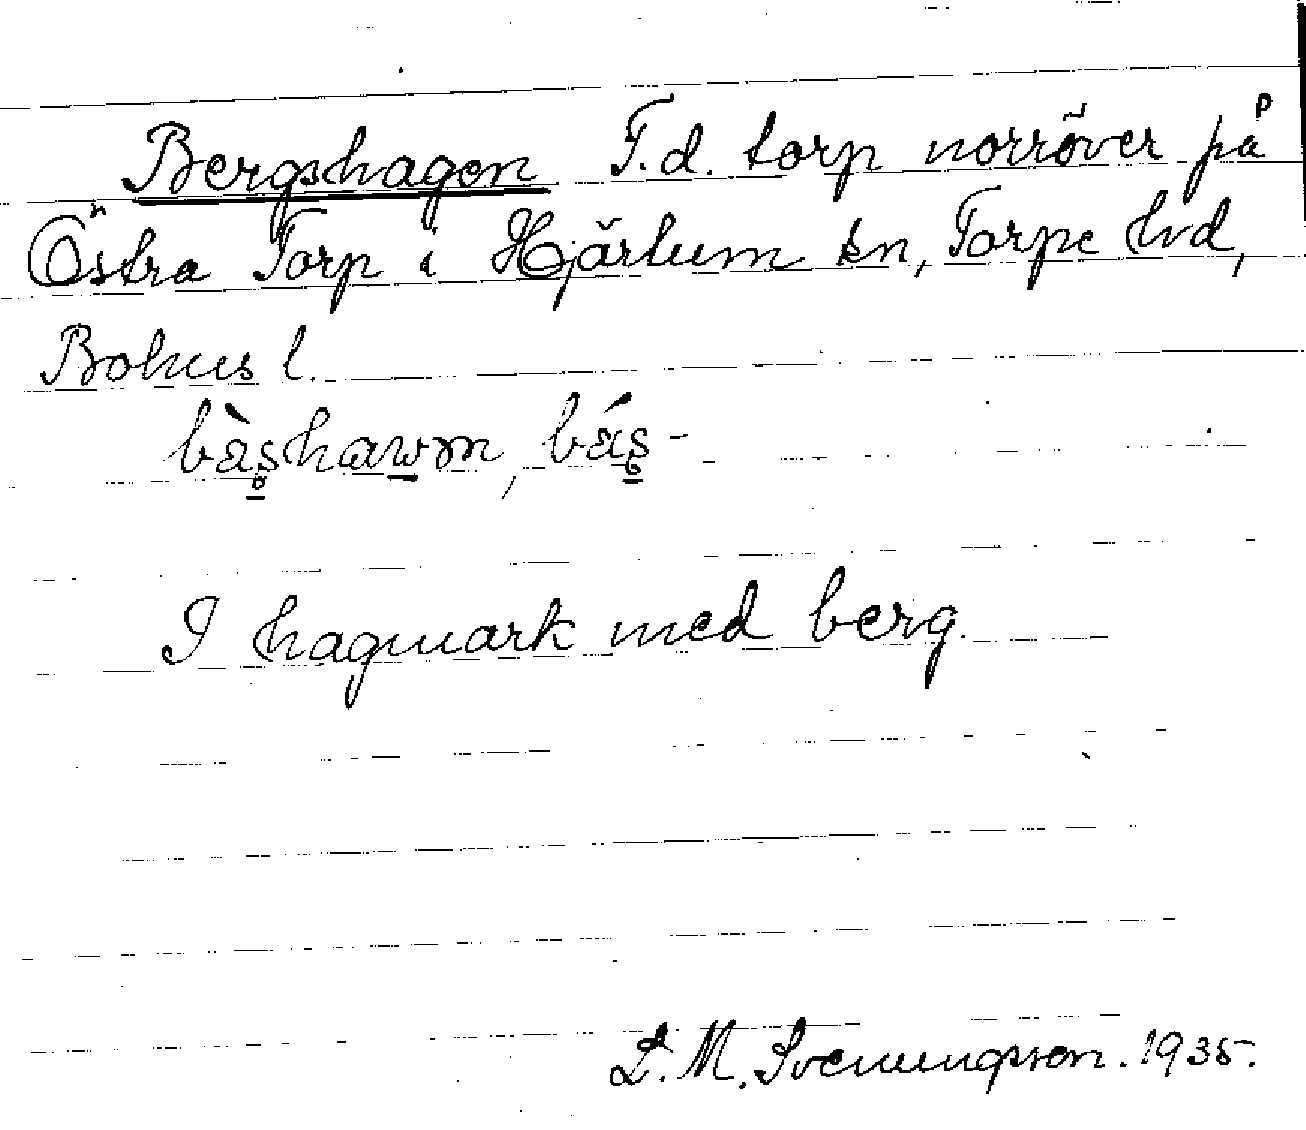 Bergshagen F.d. torp norröver på
Östra Torp i Hjärtum sn, Torpe hd,
Bohus l.
bàs̥hawən, bás̥-
I hagmark med berg.
L. M. Svenungsson. 1935.